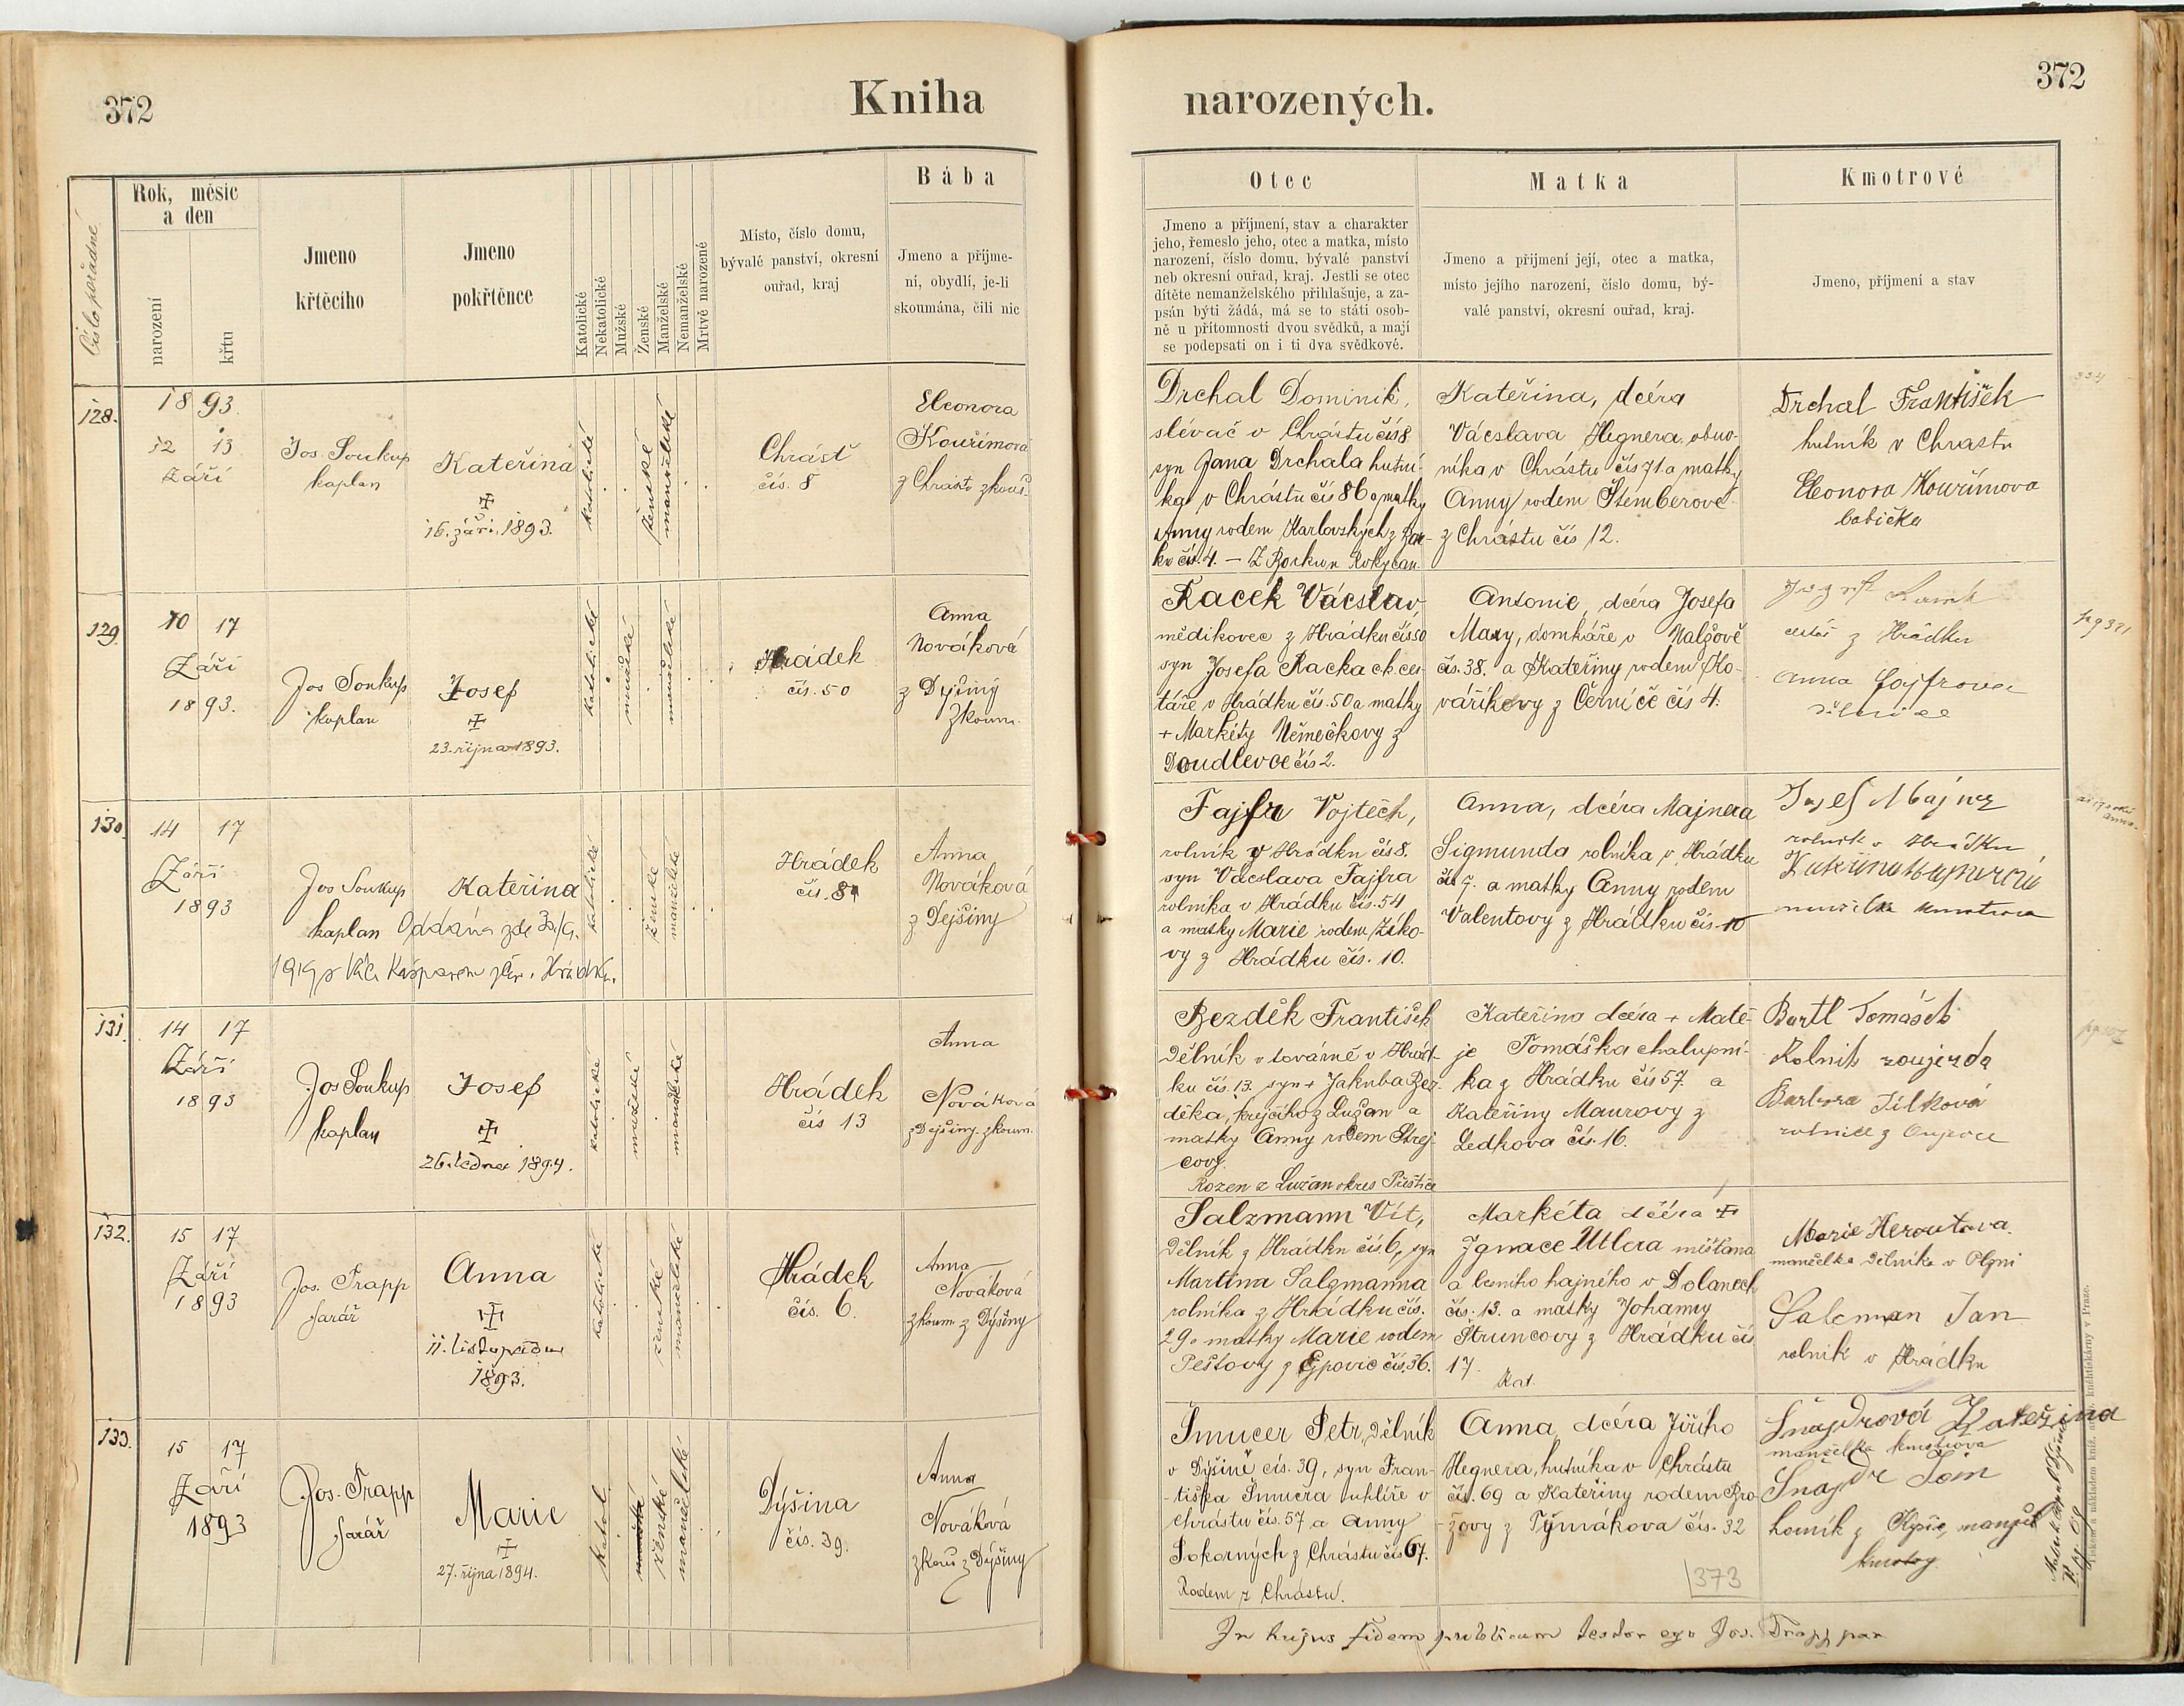 372
Kniha
narozených.
372
Číslo pořadné
Rok, měsíc
a den
narození
křtu
Jmeno
křtěcího
Jmeno
pokřtěnce
Katolické
Nekatolické
Mužské
Ženské
Manželské
Nemanželské
Mrtvě narozené
Místo, číslo domu,
bývalé panství, okresní
ouřad, kraj
Bába
Jmeno a příjme-
ní, obydlí, je-li
skoumána, čili nic
Otec
Jmeno a příjmení, stav a charakter
jeho, řemeslo jeho, otec a matka, místo
narození, číslo domu, bývalé panství
neb okresní ouřad, kraj. Jestli se otec
dítěte nemanželského přihlašuje, a za-
psán býti žádá, má se to státi osob-
ně u přítomnosti dvou svědků, a mají
se podepsati on i ti dva svědkové.
Matka
Jmeno a příjmení její, otec a matka,
místo jejího narození, číslo domu, bý-
valé panství, okresní ouřad, kraj.
Kmotrové
Jmeno, příjmení a stav
128.
1893.
12 13
Září
Jos. Soukup
kaplan
Kateřina
16. září 1893.
katolické
ženské
manželské
Chrást
čís. 8
Eleonora
Kouřimová
z Chrástu zkouš.
Drchal Dominik,
slévač v Chrástu čís 8
syn Jana Drchala hutní-
ka v Chrástu čís 86 a matky
Anny rodem Karlovských z Bor-
ku čís. 4. — Z Borku n Rokycan.
Kateřina, dcéra
Vácslava Hegnera, obuv-
níka v Chrástu čís 71. a matky
Anny rodem Štemberové
z Chrástu čís 12.
Drchal František
hutník v Chrastu
Eleonora Kouřimova
babička
129.
10 17
Září
1893.
Jos Soukup
kaplan
Josef
23. října 1893.
katolické
mužské
manželské
Hrádek
čís. 50
Anna
Nováková
z Dejšiny
zkoum.
Racek Vácslav,
mědikovec z Hrádku čís 50
syn Josefa Racka ck. ces-
táře v Hrádku čís. 50 a matky
+ Markéty Němečkovy z
Doudlevce čís 2.
Antonie, dcéra Josefa
Maxy, domkáře v Nalžově
čís. 38. a Kateřiny rodem Ko-
váříkovy z Černíče čís 4.
cestář z Hrádku
Anna Fajfrova
130.
14 17
Září
1893
Jos Soukup
kaplan
Kateřina
Oddána zde
katolické
ženské
manželské
Hrádek
čís. 8
Anna
Nováková
z Dejšiny
Fajfr Vojtěch,
rolník z Hrádku čís 8.
syn Vácslava Fajfra
rolníka v Hrádku čís. 54
a matky Marie rodem Žíko-
vy z Hrádku čís. 10.
Anna, dcéra Majnera
Sigmunda rolníka v Hrádku
čís 7. a matky Anny rodem
Valentovy z Hrádku čís. 10
Josef Majner
rolník v Hrádku
manželka kmotrova
131.
14 17
Září
1893
Jos Soukup
kaplan
Josef
26. ledna 1894.
katolické
mužské
manželské
Hrádek
čís 13
Anna
Nováková
z Dejšiny. zkoum.
Bezděk František
dělník v továrně v Hrád-
ku čís. 13. syn + Jakuba Bez-
děka, krejčího z Lužan a
matky Anny rodem Strej-
covy.
Rozen z Lužan okres Přeštice
Kateřina dcéra + Matě-
je Tomáška chalupní-
ka z Hrádku čís 57. a
Kateřiny Maurovy z
Ledkova čís. 16.
Bartl Tomáš
Rolník
Barbora Jílková
132.
15 17
Září
1893
Jos. Trapp
farář
Anna
11. listopadu
1893.
katolické
ženské
manželské
Hrádek
čís. 6.
Anna
Nováková
zkoum z Dýšiny
Salzmann Vít,
dělník z Hrádku čís. 6, syn
Martina Salzmanna
rolníka z Hrádku čís.
29 a matky Marie rodem
Peštovy z Ejpovic čís. 36.
Markéta dcéra +
Ignace Utlera měšťana
a lesního hajného v Dolanech
čís. 13. a matky Johanny
Štruncovy z Hrádku čís
17.
Kat.
Marie Heroutova.
manželka dělníka v Plzni
Salcman Jan
rolník v Hrádku
133.
15 17
Září
1893
Jos. Trapp
farář
Marie
27. října 1894.
katol.
ženské
manželské
Dýšina
čís. 39.
Anna
Nováková
zkou z Dýšiny
Šmucer Petr, dělník
v Dýšině čís. 39, syn Fran-
tiška Šmucera uhlíře v
Chrástu čís. 57 a Anny
Pokorných z Chrástu čís 67.
Rodem z Chrástu.
Anna dcéra Jiřího
Hegnera, hutníka v Chrástu
čís. 69 a Kateřiny rodem Bro-
žovy z Týmákova čís. 32
373
Šnajdrová Kateřina
manželka kmotrova
Šnajdr
horník z Kyšic, manžel
kmotry
In hujus fidem publicam testor ego Jos. Trapp par